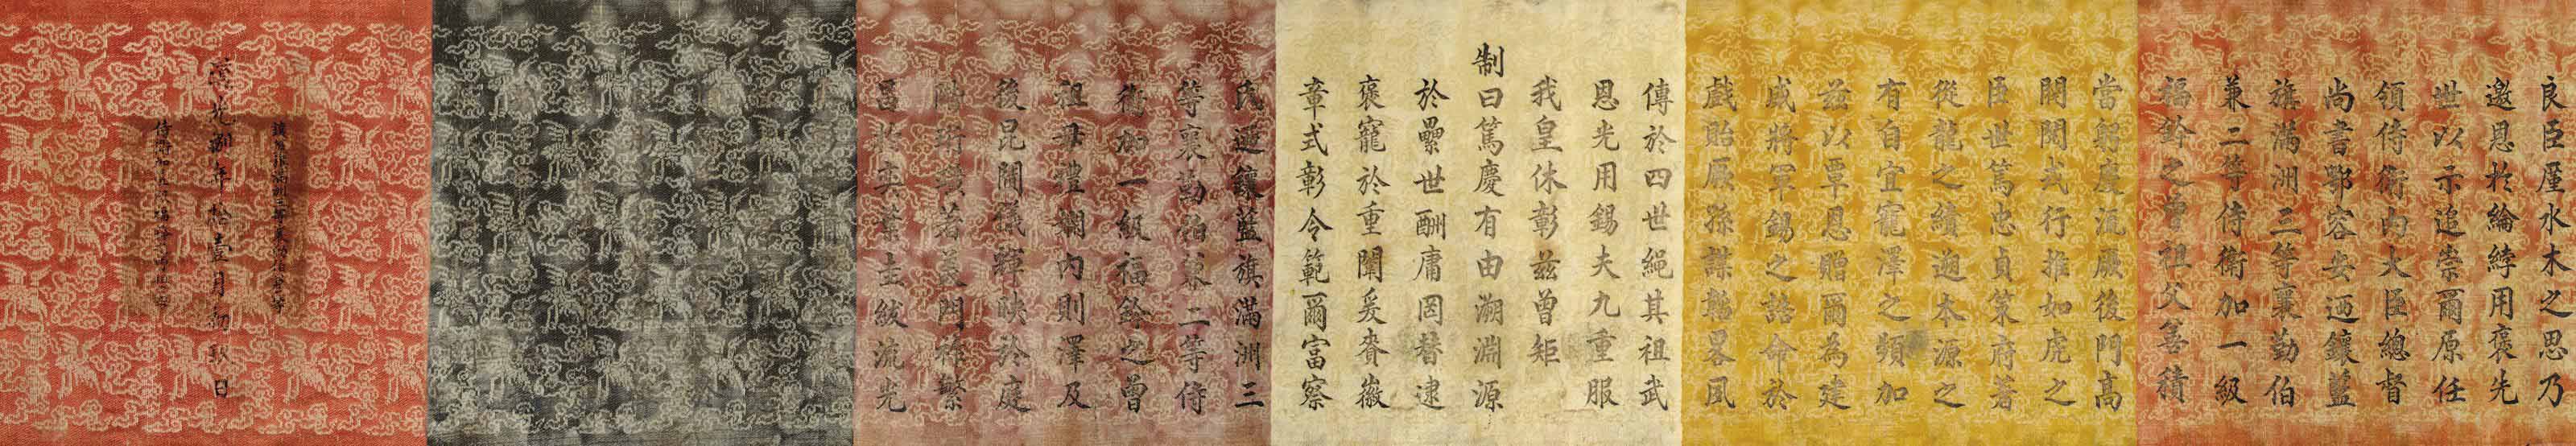 良臣厪水木之思乃
邀恩於綸綍用褒先
世以示追崇爾原任
領侍衛內大臣總督
尚書鄂容安迺鑲藍
旗滿洲三等襄勤伯
兼二等侍衛加一級
福鈐之曾祖父善積
當躬慶流厥後門高
閥閱式行推如虎之
臣世篤忠貞策府著
從龍之績遡本源之
有自宜寵澤之頻加
茲以覃恩贈爾為建
威將軍錫之誥命於
戲貽厥孫謀懿畧夙
傳於四世繩其祖武
恩光用錫夫九重服
我皇休彰茲曾矩
制曰篤慶有由溯淵源
於纍世酬庸罔替逮
褒寵於重闈爰賚徽
章式彰令範爾富察
氏迺鑲藍旗滿洲三
等襄勤伯兼二等侍
衛加一級福鈐之曾
祖母禮嫻內則澤及
後昆閫儀輝映於庭
階珩璜著美門祚繁
昌於奕葉圭紱流光
鑲藍旗滿洲三等襄勤伯兼二等
道光捌年拾壹月初玖日
侍衛加一級福鈐曾祖